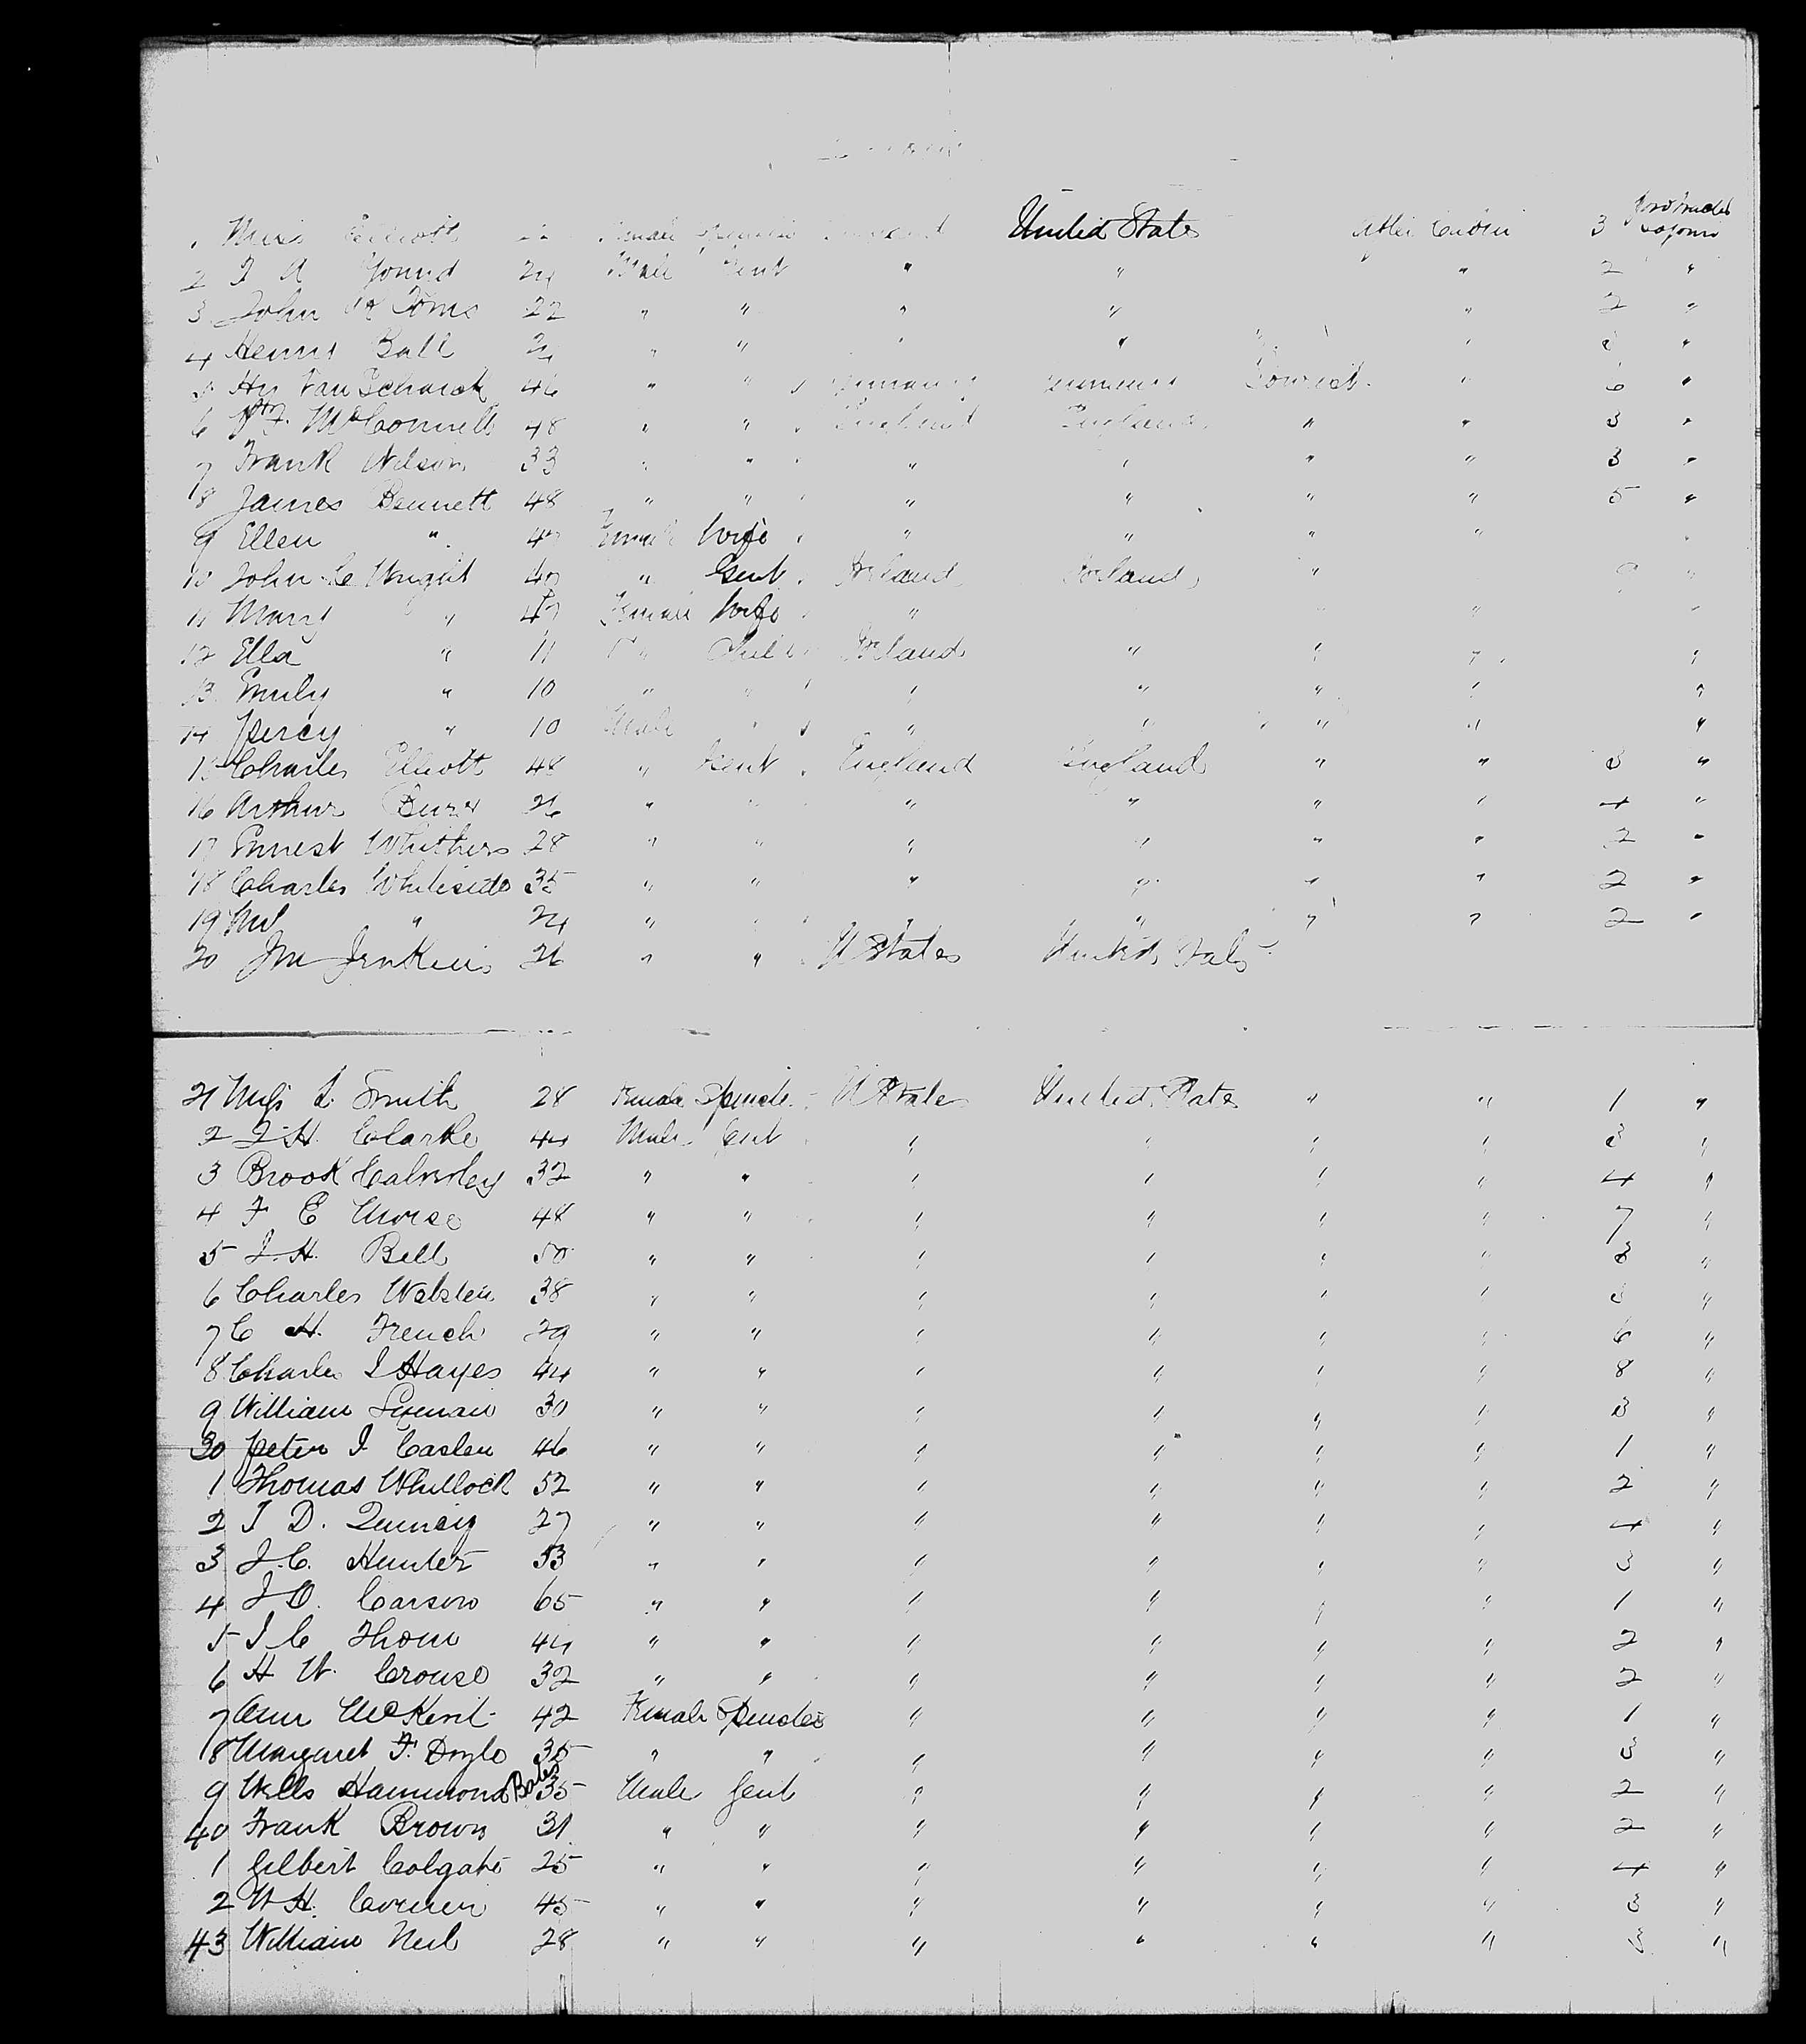 1 Miss Elliott Female Spinster United States After Cabin 3 Protracted sojourn
2 F A Young 24 Male Gent " " " 2 "
3 John R Toms 22 " " " " " 2 "
4 Henry Ball " " " " " "
5 Hy Van Schaick 46 " " Germany Tourist " 6 "
6 McConnell 48 " " England England " " 3 "
7 Frank Wilson 33 " " " " " " 3 "
8 James Bennett 48 " " " " " " 5 "
9 Ellen " Female Wife " " " "
10 John C Wright " Gent Ireland Ireland "
11 Mary " 47 Female Wife " " "
12 Ella " 11 " Child Ireland " " " "
13 Emily " 10 " " " " " " "
14 Percy " 10 Male " " " " " "
15 Charles Elliott 48 " Gent England England " " 3 "
16 Arthur 26 " " " " " " 4 "
17 Ernest Whithers 28 " " " " " " 2 "
18 Charles Whiteside 35 " " " " " " 2 "
19 " 24 " " " " " " 2 "
20 Jno Jenkins 26 " " U States United States
21 Miss L. Smith 28 Female Spinster U States United States " " 1 "
2 J.H. Clarke 44 Male Gent " " " " 3 "
3 Brook 32 " " " " " " 4 "
4 F E Morse 48 " " " " " " 7 "
5 J.H. Bell 50 " " " " " " 3 "
6 Charles 38 " " " " " " 3 "
7 C H. French 29 " " " " " " 6 "
8 Charles J Hayes 44 " " " " " " 8 "
9 William 30 " " " " " " 3 "
30 Peter J Caslen 46 " " " " " " 1 "
1 Thomas Whullock 52 " " " " " " 2 "
2 J D. Quincy 27 " " " " " " 4 "
3 J.C. Hunter 53 " " " " " " 3 "
4 J O. Carson 65 " " " " " " 1 "
5 J C Thom 44 " " " " " " 2 "
6 H W. Crouse 32 " " " " " " 2 "
7 Ann 42 Female Spinster " " " " 1 "
8 Margaret F. Doyle 35 " " " " " " 3 "
9 Wells Hammond Bates 35 Male Gent " " " " 2 "
40 Frank Brown 31 " " " " " " 2 "
1 Gilbert Colgate 25 " " " " " " 4 "
2 W H. 45 " " " " " " 3 "
43 William Neil 28 " " " " " " 3 "